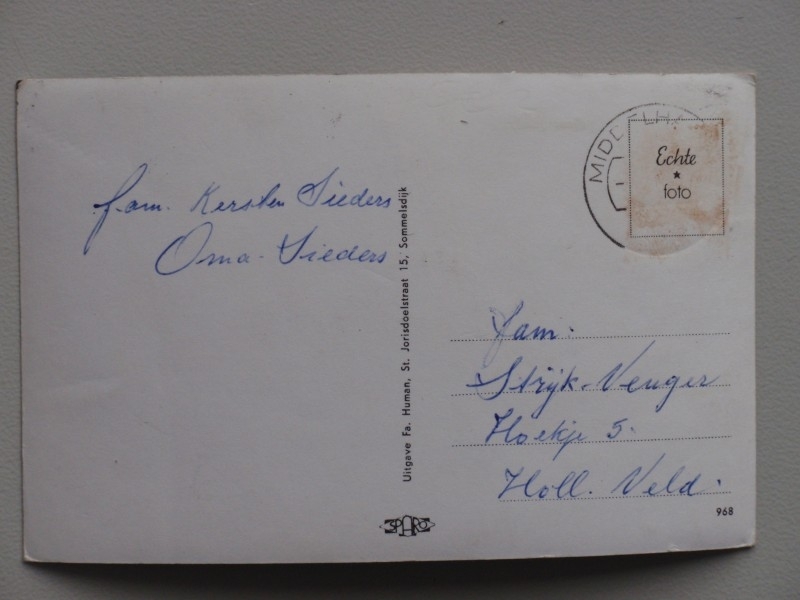 fam. Kersten Sieders
Oma - Sieders
Uitgave Fa. Human, St. Jorisdoelstraat 15, Sommelsdijk
MIDDELH
Echte
foto
fam.
Strijk-Venger
Hoekje 5.
Holl. Veld.
SPARO
968